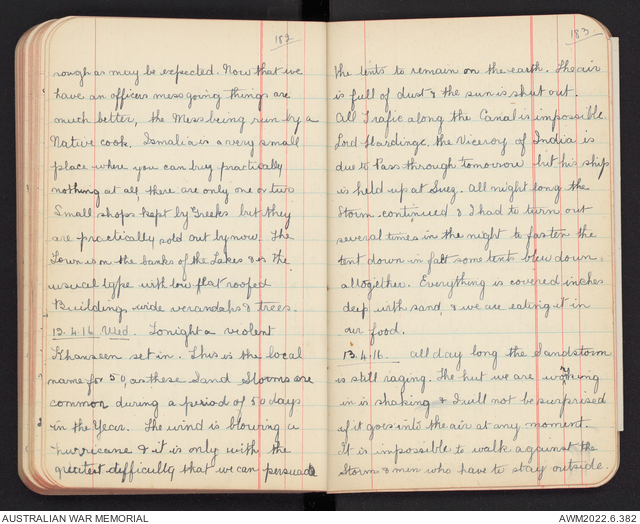 182
rough as may be expected. Now that we
have an officers mess going things are
much better, the Mess being run by a
Native cook. Ismalia is a very small
place where you can buy practically
nothing at all, there are only one or two
Small shops kept by Greeks but they
are practically sold out by now. The
Town is on the banks of the Lakes & is the
usual type with low flat roofed
Buildings wide verandahs & trees.
13.4.16 Wed. Tonight a violent
Khamseen set in. This is the local
name for 50, as these Sand Storms are
common during a period of 50 days
in the Year. The wind is blowing a
hurricane & it is only with the
greatest difficulty that we can persuade
183
the tents to remain on the earth. The air
is full of dust & the sun is shut out.
All Trafic along the Canal is impossible.
Lord Hardinge, the Viceroy of India is
due to Pass through tomorrow but his ship
is held up at Suez. All night long the
Storm continued & I had to turn out
several times in the night to fasten the
tent down in fact some tents blew down
altogether. Everything is covered inches
deep with sand, & we are eating it in
our food.
13.4.16. all day long the Sandstorm
is still raging. The hut we are working
in is shaking & I will not be surprised
if it goes into the air at any moment.
It is impossible to walk against the
Storm & men who have to stay outside.
AUSTRALIAN WAR MEMORIAL
AWM2022.6.382